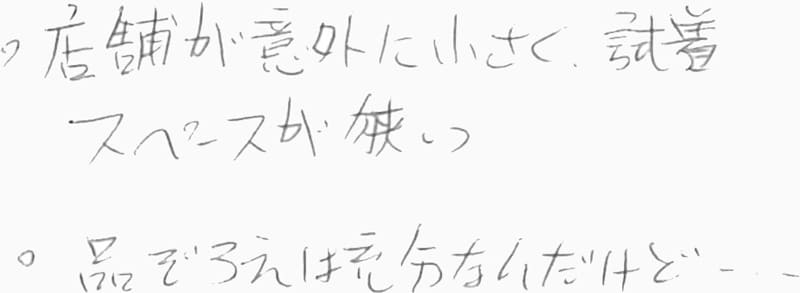 。店舗が意外に小さく、試着
スペースが狭い
。品ぞろえは充分なんだけど---